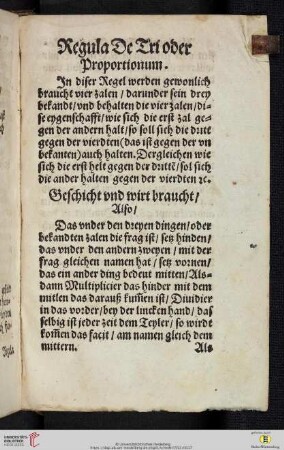 Regula De Tri oder
Proportionum.
In diser Regel werden gewonlich
braucht vier zalen/ darunder sein drey
bekandt/ vnd behalten die vier zalen/ di-
se eygenschafft/ wie sich die erst zal ge-
gen der andern halt/ so soll sich die dritt
gegen der vierdten (das ist gegen der vn
bekanten) auch halten. Dergleichen wie
sich die erst helt gegen der dritte/ sol sich
die ander halten gegen der vierdten ꝛc.
Geschicht vnd wirt braucht/
Also/
Das vnder den dreyen dingen/ oder
bekandten zalen die frag ist/ setz hinden/
das vnder den andern zweyen/ mit der
frag gleichen namen hat/ setz vornen/
das ein ander ding bedeut mitten/ Als-
dann Multiplicier das hinder mit dem
mitlen das darauß kum̄en ist/ Diuidier
in das vorder/ bey der lincken hand/ das
selbig ist jeder zeit dem Teyler/ so wirdt
kom̄en das facit/ am namen gleich dem
mittern. Als